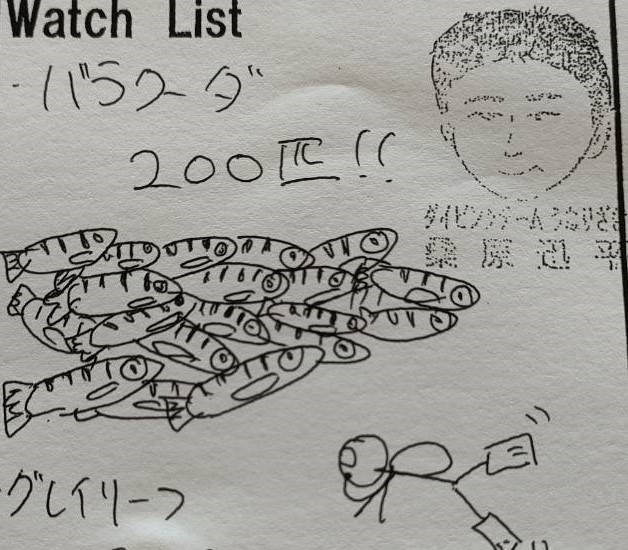 Watch List
・バラクーダ
200匹!!
ダイビングチームうなりざき
桑原迅平
グレイリーフ